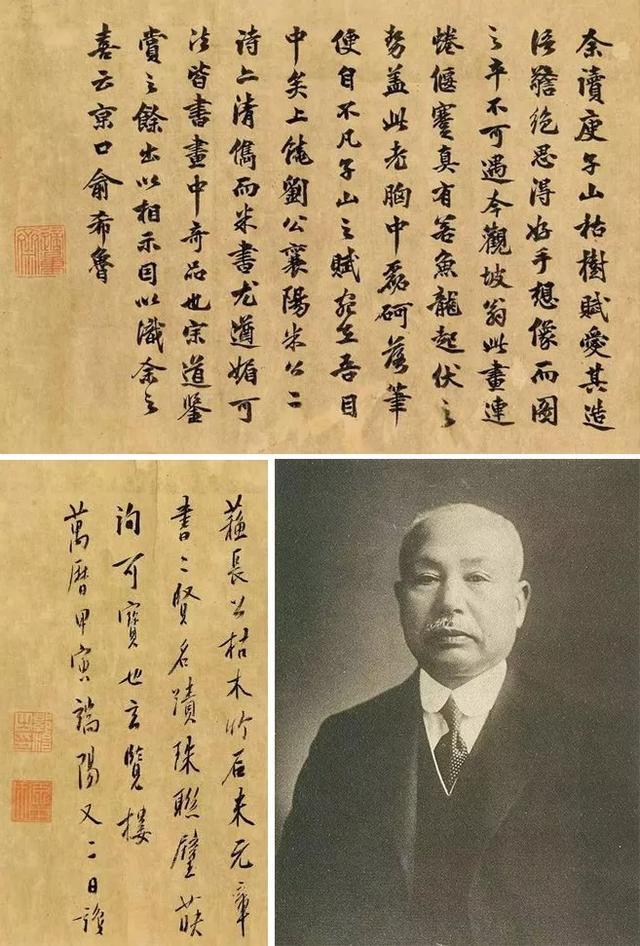 余讀庾子山枯樹賦愛其造
語絶思得好手想像而圖
之卒不可遇今觀坡翁此畫連
蜷偃蹇真有若魚龍起伏之
勢盖此老胸中磊砢落筆
便自不凡子山之賦宛在吾目
中矣上饒劉公襄陽米公二
詩亦清儁而米書尤遒媚可
法皆書畫中奇品也宗道鑒
賞之餘出以相示因以識余之
喜云京口俞希魯
蘇長公枯木竹石米元章
書二賢名蹟珠聯璧
洵可寶也玄覽樓
萬曆甲寅端陽又二日識